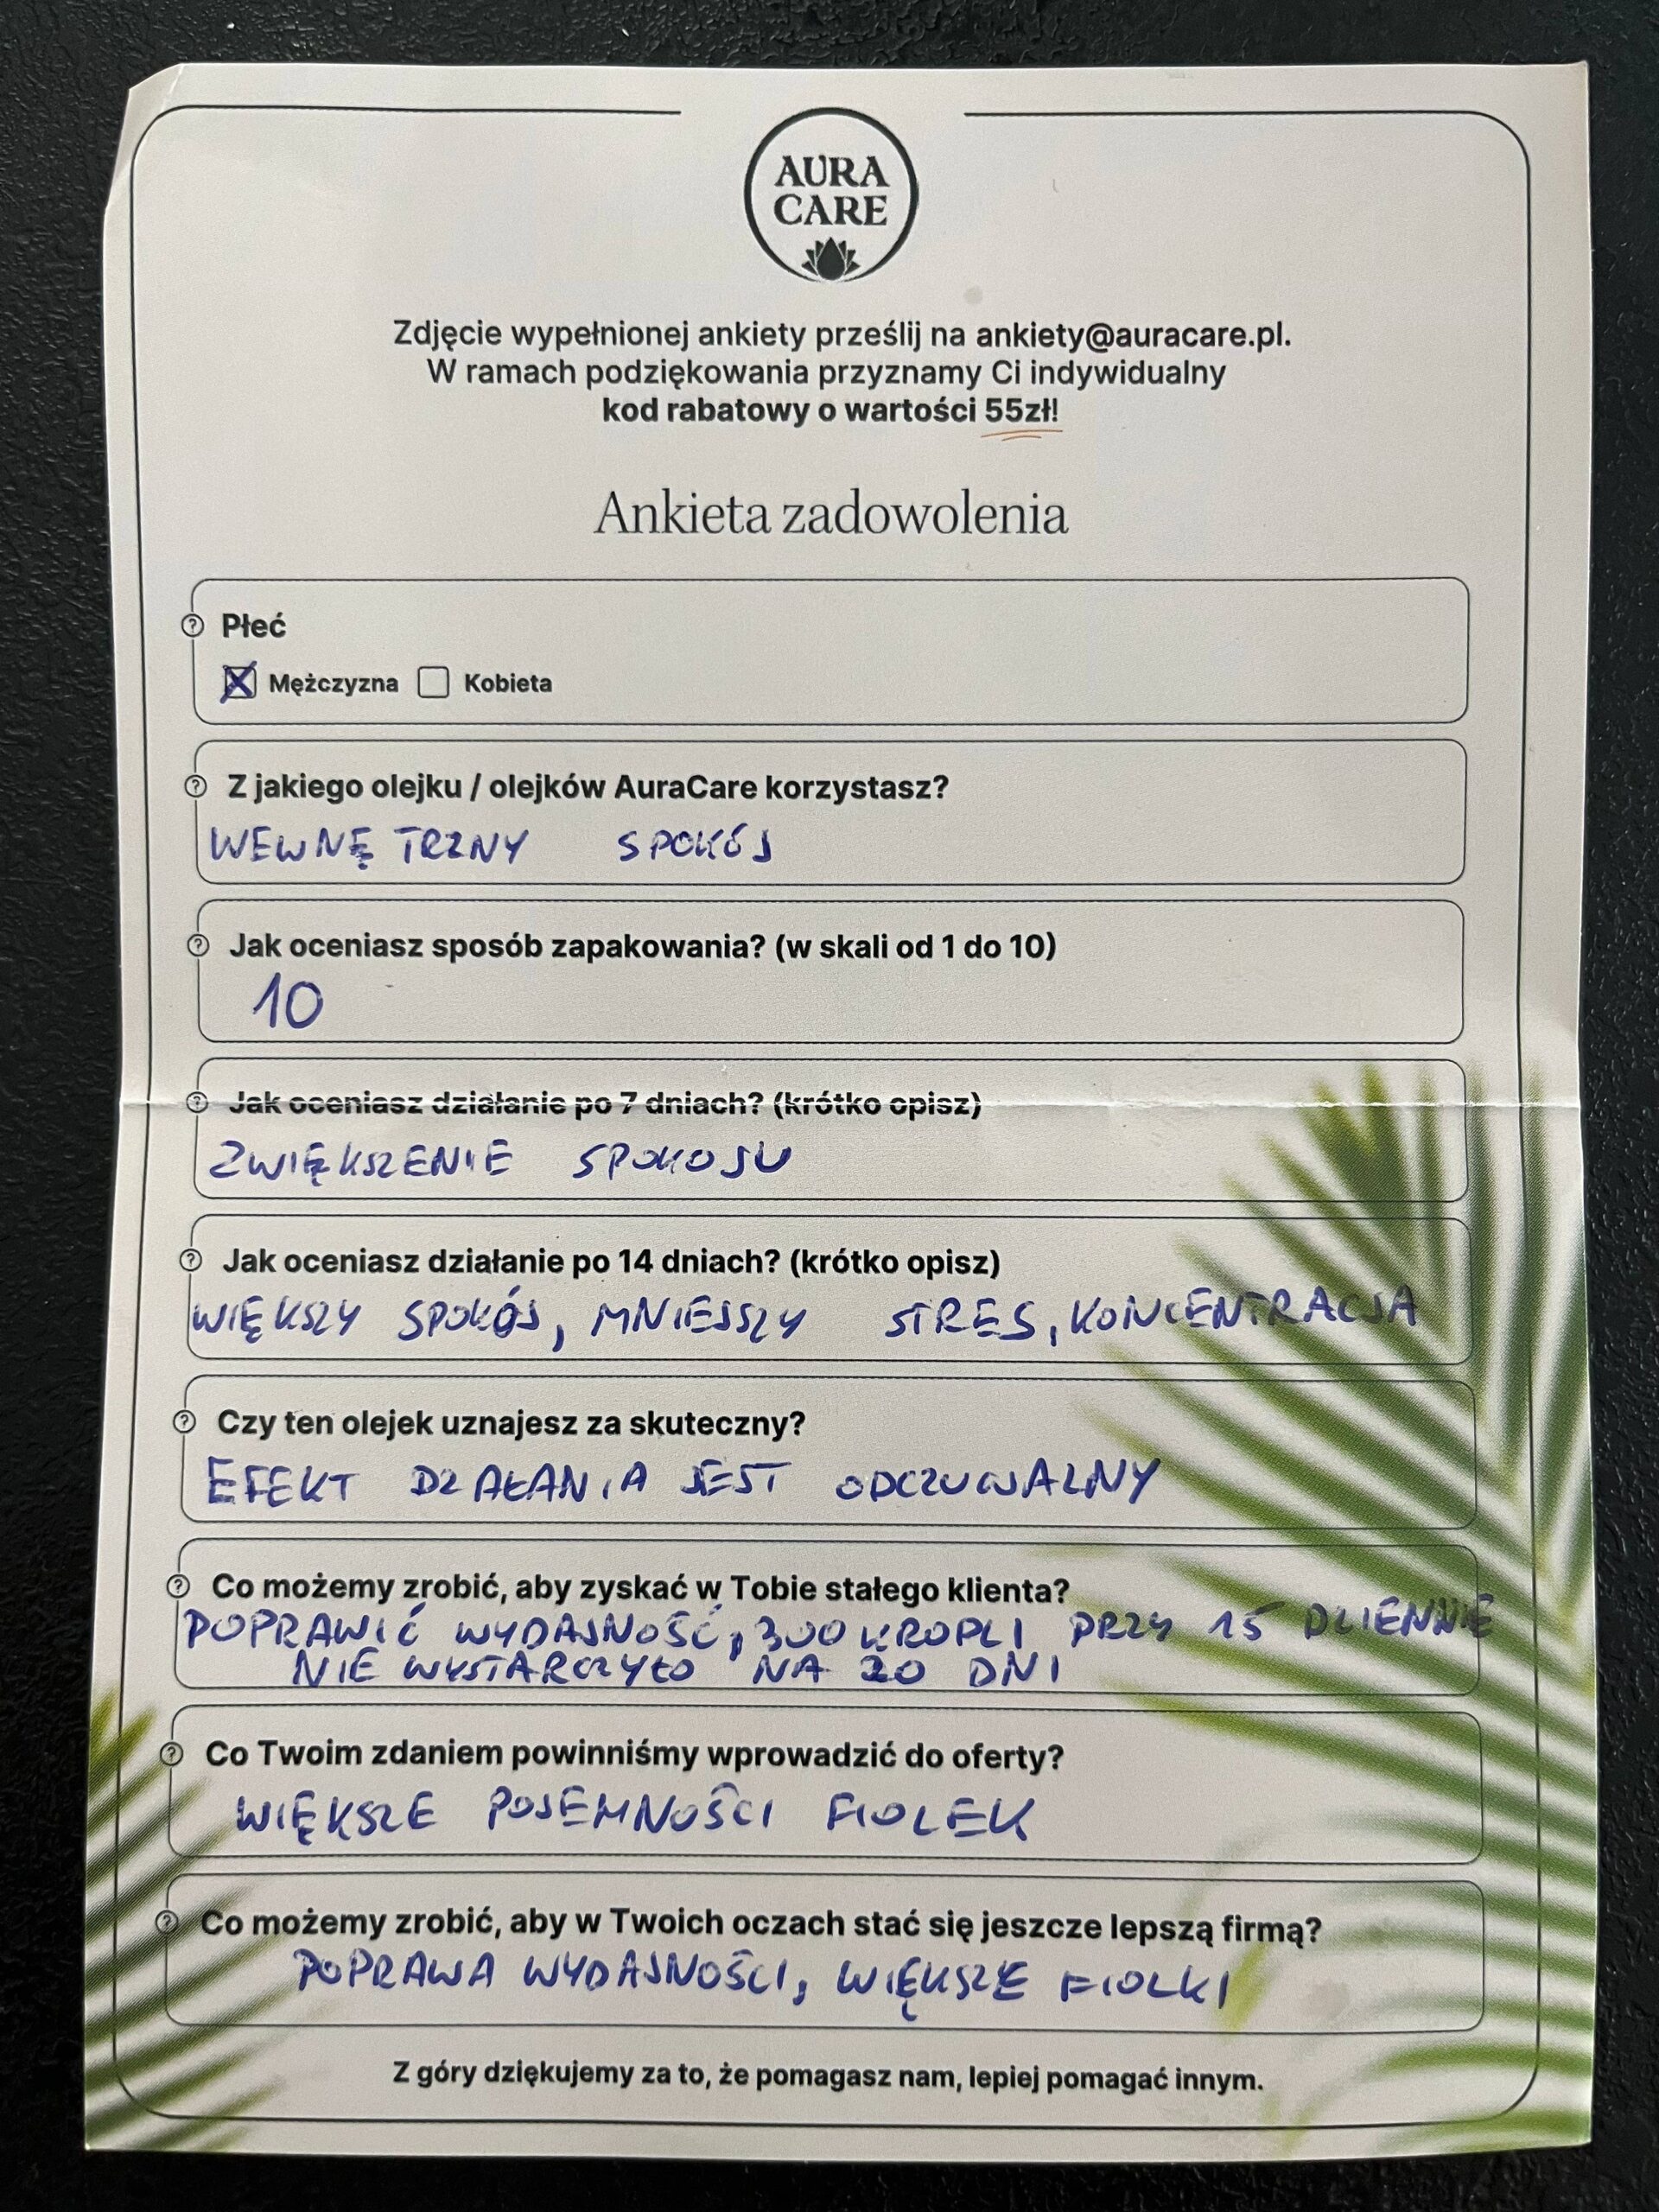 AURA
CARE
Zdjęcie wypełnionej ankiety prześlij na ankiety@auracare.pl.
W ramach podziękowania przyznamy Ci indywidualny
kod rabatowy o wartości 55zł!
Ankieta zadowolenia
Płeć
Mężczyzna Kobieta
Z jakiego olejku / olejków AuraCare korzystasz?
WEWNĘTRZNY SPOKÓJ
Jak oceniasz sposób zapakowania? (w skali od 1 do 10)
10
Jak oceniasz działanie po 7 dniach? (krótko opisz)
ZWIĘKSZENIE SPOKOJU
Jak oceniasz działanie po 14 dniach? (krótko opisz)
WIĘKSZY SPOKÓJ, MNIEJSZY STRES, KONCENTRACJA
Czy ten olejek uznajesz za skuteczny?
EFEKT DZAŁANIA JEST ODCZUWALNY
Co możemy zrobić, aby zyskać w Tobie stałego klienta?
POPRAWIĆ WYDAJNOŚĆ, 300 KROPLI PRZY 15 DZIENNIE
NIE WYSTARCZYŁO NA 20 DNI
Co Twoim zdaniem powinniśmy wprowadzić do oferty?
WIĘKSZE POJEMNOŚCI FIOLEK
Co możemy zrobić, aby w Twoich oczach stać się jeszcze lepszą firmą?
POPRAWA WYDAJNOŚCI, WIĘKSZE FIOLKI
Z góry dziękujemy za to, że pomagasz nam, lepiej pomagać innym.